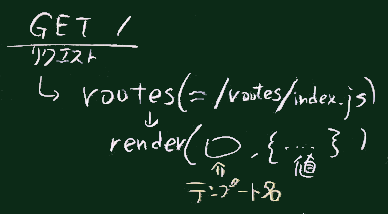 GET /
リクエスト
↳ routes(=/routes/index.js)
↓
render(◯,{....})
↑ 値
テンプレート名